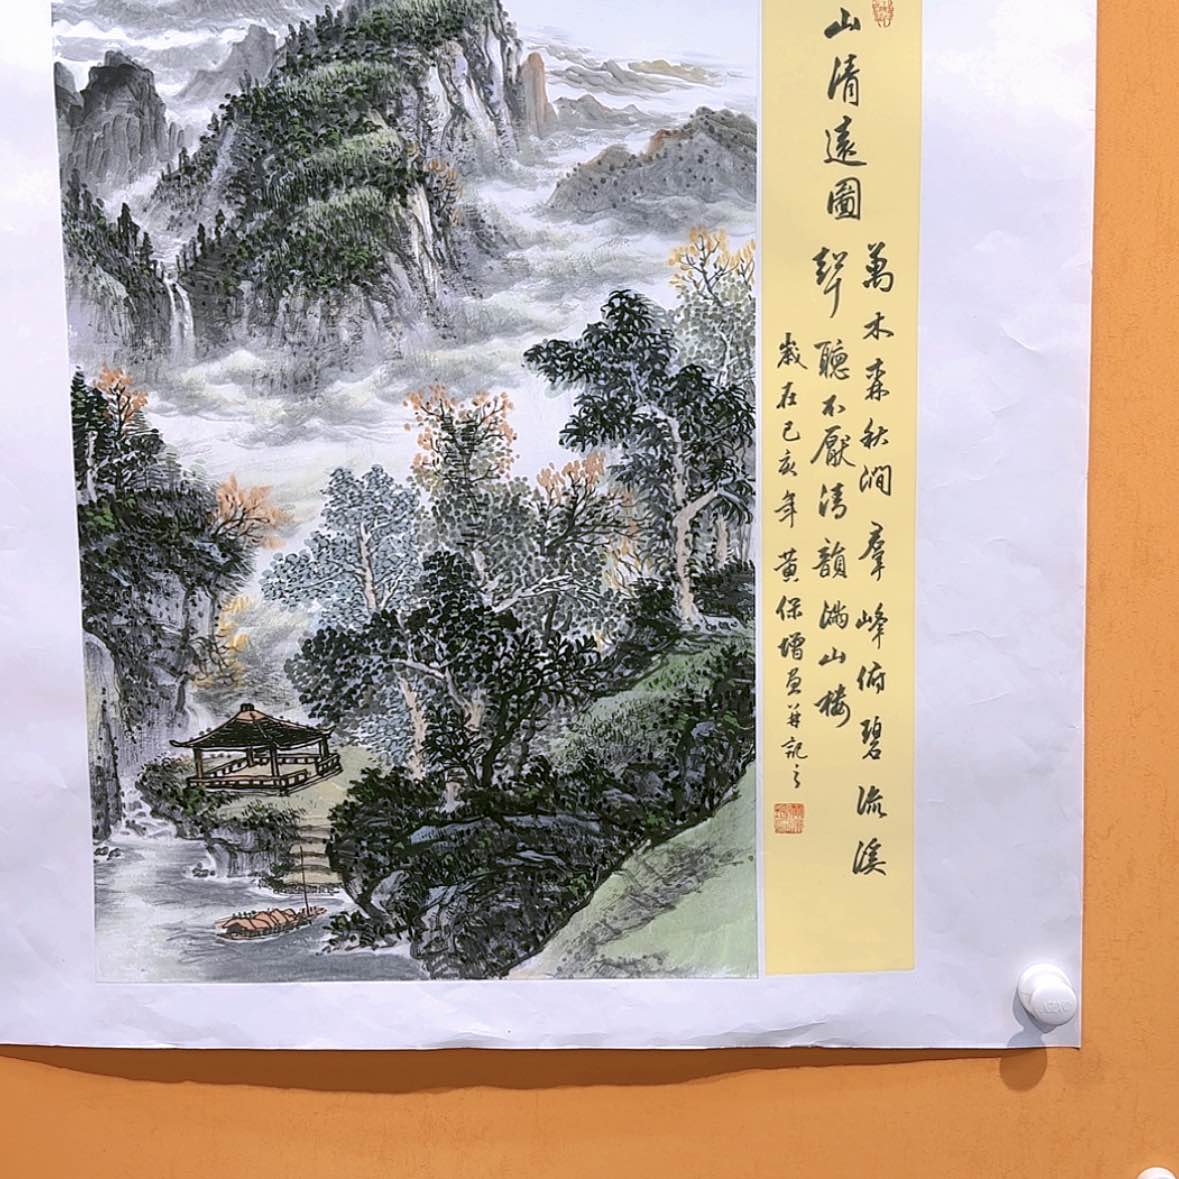 山清遠圖
萬木森秋澗羣峰俯碧流溪
聲聽不厭清韻滿山樓
歲在己亥年黃保增畫並記之